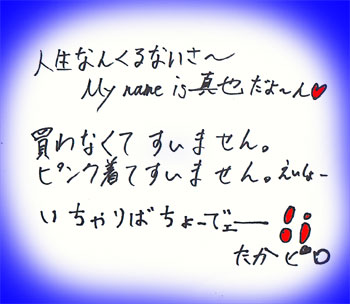 人生なんくるないさ〜
My name is 真也だよ〜ん
買わなくてすいません。
ピンク着てすいません。えいしょー
いちゃりばちょーでェー!!
たかピロ